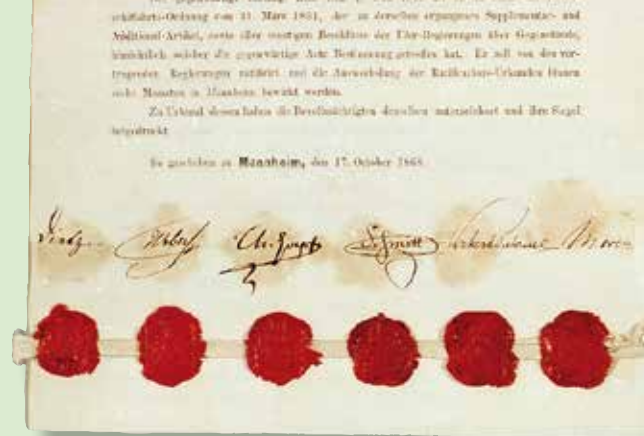 schifffahrts-Ordnung vom 31. März 1831, der zu derselben ergangenen Supplementar- und
Additional-Artikel, sowie aller sonstigen Beschlüsse der Ufer-Regierungen über Gegenstände,
hinsichtlich welcher die gegenwärtige Acte Bestimmung getroffen hat. Er soll von den ver-
tragenden Regierungen ratificirt und die Auswechslung der Ratifications-Urkunden binnen
sechs Monaten in Mannheim bewirkt werden.
Zu Urkund dessen haben die Bevollmächtigten denselben unterzeichnet und ihre Siegel
beigedruckt
So geschehen zu Mannheim, den 17. October 1868.
Dietz Schmitt